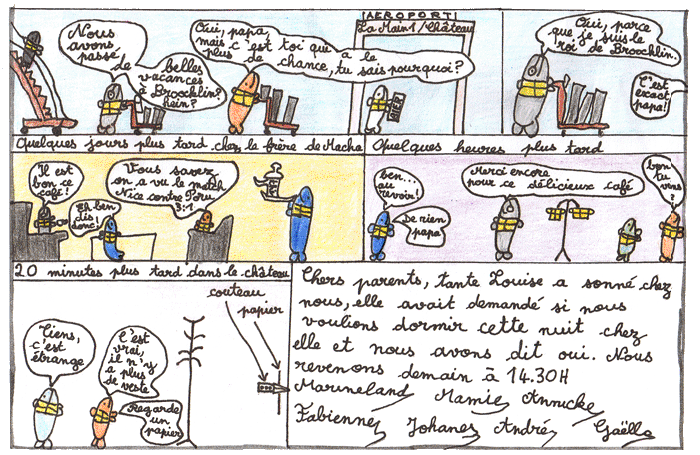 Nous
avons
passé
de belles
vacances
à Broochlin?
hein?
Oui, papa,
mais c'est toi qui a le
plus de chance, tu sais pourquoi?
AEROPORT
La Main1/Château
Oui, parce
que je suis le
roi de Broochlin.
C'est
exact
papa!
Quelques jours plus tard chez le frère de Macha
Il est
bon ce
café!
Eh ben
dis
donc!
Vous savez
on a vu le match
Nice contre Toru
3:1
Quelques heures plus tard
ben...
au
revoir!
De rien
papa
Merci encore
pour ce délicieux café
bon
tu
viens!
20 minutes plus tard dans le château
Tiens,
c'est
étrange
C'est
vrai,
il n'y
a plus
de veste
Regarde
un
papier
couteau
papier
Chers parents, tante Louise a sonné chez
nous, elle avait demandé si nous
voulions dormir cette nuit chez
elle et nous avons dit oui. Nous
revenons demain à 14.30H
Marineland Mamie Annucke
Fabienne Johanes André Gaëlle